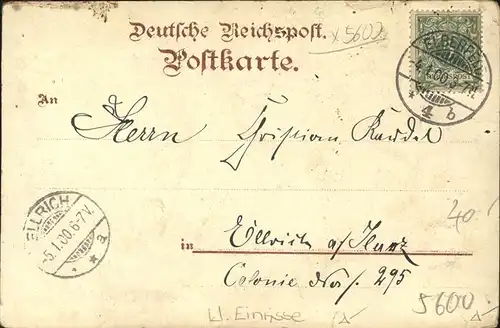 Deutsche Reichspost.
x5602
Postkarte.
ELBERFELD
4.1.00.6-7N.
4 b
An
Herrn Christian Kandel
ELLRICH
5.1.00.6-7V.
* * a
40.-
in Ellrich a/Harz
Colonie No. 295
5600
kl. Einrisse